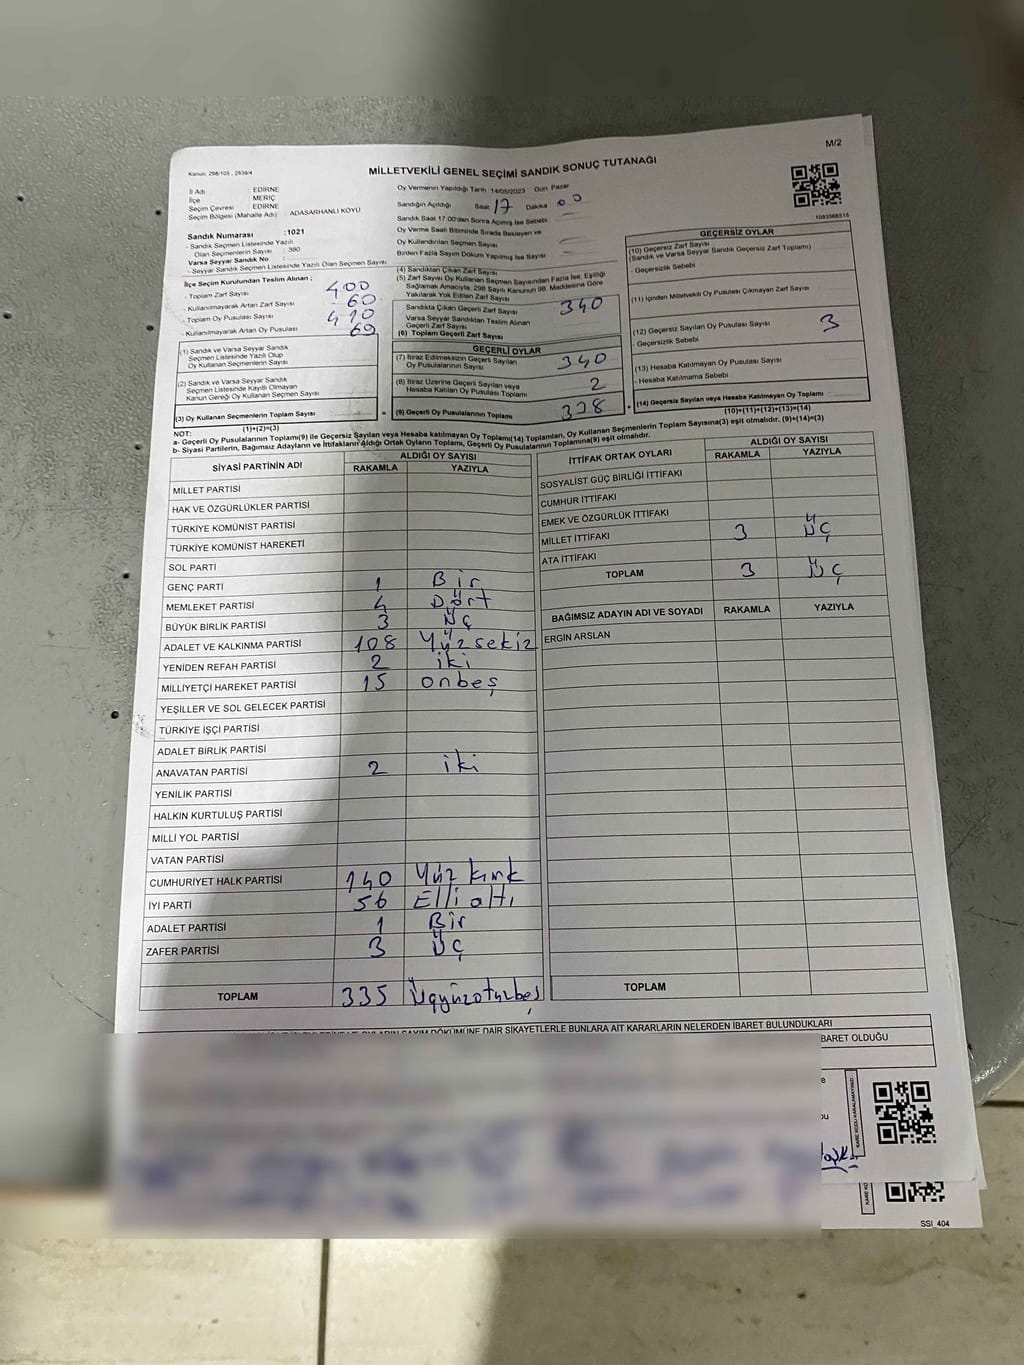 M/2
Kanun: 298/105, 2839/4
MİLLETVEKİLİ GENEL SEÇİMİ SANDIK SONUÇ TUTANAĞI
İl Adı : EDİRNE
İlçe : MERİÇ
Seçim Çevresi : EDİRNE
Seçim Bölgesi (Mahalle Adı) : ADASARHANLI KÖYÜ
Sandık Numarası : 1021
- Sandık Seçmen Listesinde Yazılı
Olan Seçmenlerin Sayısı : 380
Varsa Seyyar Sandık No :
- Seyyar Sandık Seçmen Listesinde Yazılı Olan Seçmen Sayısı
İlçe Seçim Kurulundan Teslim Alınan ;
- Toplam Zarf Sayısı 400
- Kullanılmayarak Artan Zarf Sayısı 60
- Toplam Oy Pusulası Sayısı 410
- Kullanılmayarak Artan Oy Pusulası 69
(1) Sandık ve Varsa Seyyar Sandık
Seçmen Listesinde Yazılı Olup
Oy Kullanan Seçmenlerin Sayısı
(2) Sandık ve Varsa Seyyar Sandık
Seçmen Listesinde Kayıtlı Olmayan
Kanun Gereği Oy Kullanan Seçmen Sayısı
(3) Oy Kullanan Seçmenlerin Toplam Sayısı :
(1)+(2)=(3)
Oy Vermenin Yapıldığı Tarih :14/05/2023 Gün: Pazar
Sandığın Açıldığı Saat 17 Dakika 00
Sandık Saat 17:00'den Sonra Açılmış İse Sebebi
Oy Verme Saati Bitiminde Sırada Bekleyen ve
Oy Kullandırılan Seçmen Sayısı
Birden Fazla Sayım Döküm Yapılmış İse Sayısı
(4) Sandıktan Çıkan Zarf Sayısı
(5) Zarf Sayısı Oy Kullanan Seçmen Sayısından Fazla İse, Eşitliği
Sağlamak Amacıyla, 298 Sayılı Kanunun 98. Maddesine Göre
Yakılarak Yok Edilen Zarf Sayısı
Sandıkta Çıkan Geçerli Zarf Sayısı 340
Varsa Seyyar Sandıktan Teslim Alınan
Geçerli Zarf Sayısı
(6) Toplam Geçerli Zarf Sayısı
GEÇERLİ OYLAR
(7) İtiraz Edilmeksizin Geçerli Sayılan
Oy Pusulalarının Sayısı 340
(8) İtiraz Üzerine Geçerli Sayılan veya
Hesaba Katılan Oy Pusulası Toplamı 2
(9) Geçerli Oy Pusulalarının Toplamı 338
1083588515
GEÇERSİZ OYLAR
(10) Geçersiz Zarf Sayısı
(Sandık ve Varsa Seyyar Sandık Geçersiz Zarf Toplamı)
- Geçersizlik Sebebi
(11) İçinden Milletvekili Oy Pusulası Çıkmayan Zarf Sayısı
(12) Geçersiz Sayılan Oy Pusulası Sayısı 3
- Geçersizlik Sebebi
(13) Hesaba Katılmayan Oy Pusulası Sayısı
- Hesaba Katılmama Sebebi
(14) Geçersiz Sayılan veya Hesaba Katılmayan Oy Toplamı :
(10)+(11)+(12)+(13)=(14)
NOT:
a- Geçerli Oy Pusulaları Toplamı(9) ile Geçersiz Sayılan veya Hesaba katılmayan Oy Toplamı(14) Toplamları, Oy Kullanan Seçmenlerin Toplam Sayısına(3) eşit olmalıdır. (9)+(14)=(3)
b- Siyasi Partilerin, Bağımsız Adayların ve İttifakların Aldığı Ortak Oyların Toplamı, Geçerli Oy Pusulalarının Toplamına(9) eşit olmalıdır.
SİYASİ PARTİNİN ADI ALDIĞI OY SAYISI
RAKAMLA YAZIYLA
MİLLET PARTİSİ
HAK VE ÖZGÜRLÜKLER PARTİSİ
TÜRKİYE KOMÜNİST PARTİSİ
TÜRKİYE KOMÜNİST HAREKETİ
SOL PARTİ
GENÇ PARTİ 1 Bir
MEMLEKET PARTİSİ 4 Dört
BÜYÜK BİRLİK PARTİSİ 3 Üç
ADALET VE KALKINMA PARTİSİ 108 Yüzsekiz
YENİDEN REFAH PARTİSİ 2 iki
MİLLİYETÇİ HAREKET PARTİSİ 15 onbeş
YEŞİLLER VE SOL GELECEK PARTİSİ
TÜRKİYE İŞÇİ PARTİSİ
ADALET BİRLİK PARTİSİ
ANAVATAN PARTİSİ 2 iki
YENİLİK PARTİSİ
HALKIN KURTULUŞ PARTİSİ
MİLLİ YOL PARTİSİ
VATAN PARTİSİ
CUMHURİYET HALK PARTİSİ 140 Yüz kırk
İYİ PARTİ 56 Elli altı
ADALET PARTİSİ 1 Bir
ZAFER PARTİSİ 3 Üç
TOPLAM 335 Üçyüzotuzbeş
İTTİFAK ORTAK OYLARI ALDIĞI OY SAYISI
RAKAMLA YAZIYLA
SOSYALİST GÜÇ BİRLİĞİ İTTİFAKI
CUMHUR İTTİFAKI
EMEK VE ÖZGÜRLÜK İTTİFAKI
MİLLET İTTİFAKI 3 Üç
ATA İTTİFAKI
TOPLAM 3 Üç
BAĞIMSIZ ADAYIN ADI VE SOYADI RAKAMLA YAZIYLA
ERGİN ARSLAN
TOPLAM
DÖKÜMÜNE DAİR ŞİKAYETLERLE BUNLARA AİT KARARLARIN NELERDEN İBARET BULUNDUKLARI
BARET OLDUĞU
KARE KODU KARALAMAYINIZ!
SSI_404